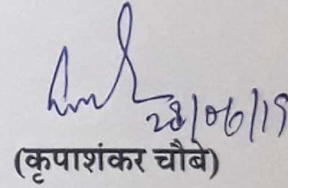 28/06/19
(कृपाशंकर चौबे)